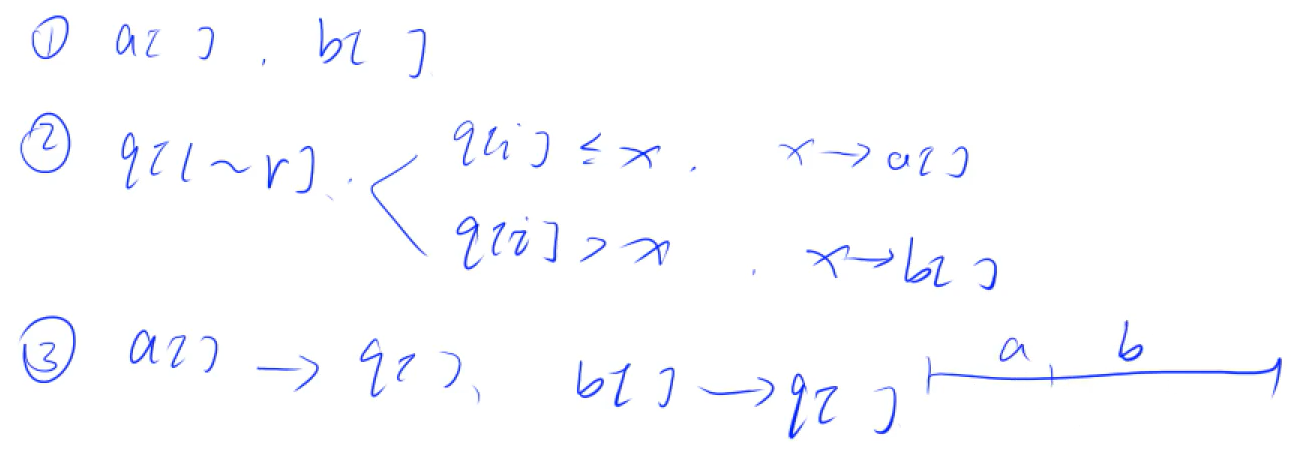 ① a[ ] , b[ ]
② q[l~r] .
q[i] ≤ x . x→a[ ]
q[i] > x . x→b[ ]
③ a[ ] → q[ ], b[ ] → q[ ] a b